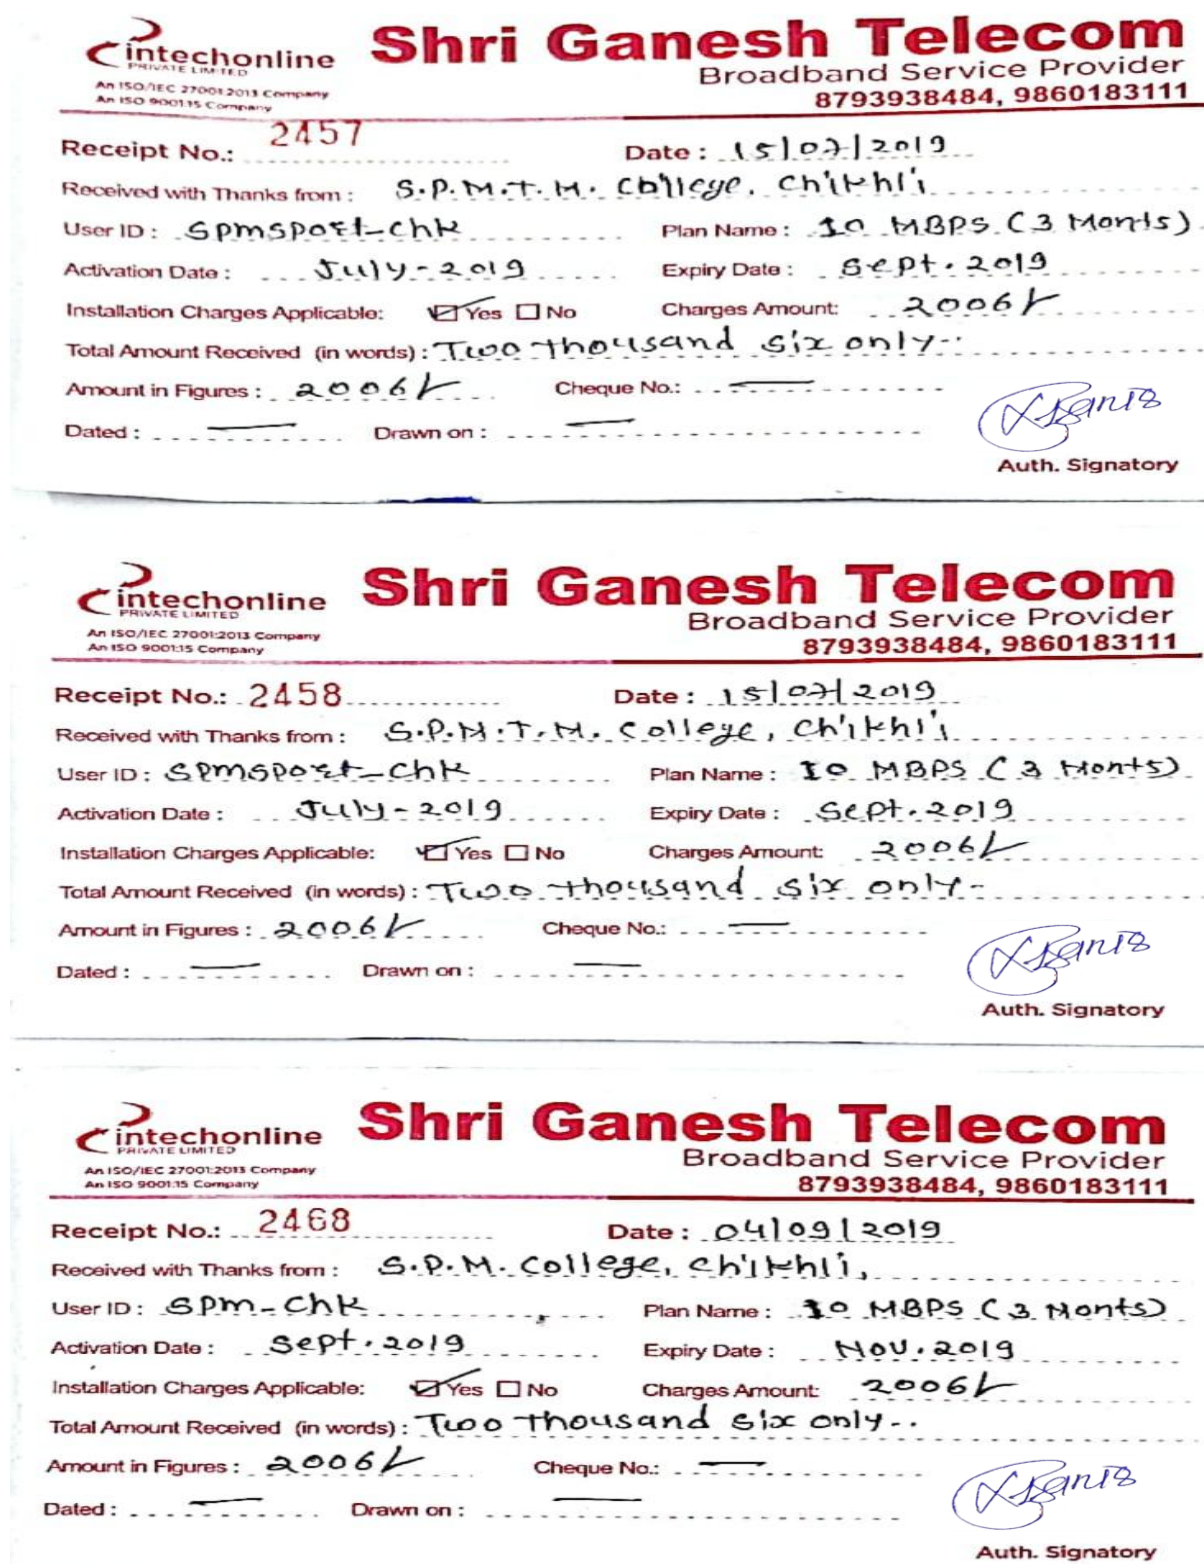 intechonline Shri Ganesh Telecom
PRIVATE LIMITED Broadband Service Provider
An ISO/IEC 27001:2013 Company
An ISO 9001:15 Company 8793938484, 9860183111
Receipt No.: 2457 Date : 15/07/2019
Received with Thanks from : S.P.M.T.M. College, Chikhli
User ID : Spmspost-chk Plan Name : 10 MBPS (3 Monts)
Activation Date : July-2019 Expiry Date : Sept. 2019
Installation Charges Applicable: Yes No Charges Amount: 2006/-
Total Amount Received (in words) : Two thousand six only-
Amount in Figures : 2006/- Cheque No.: —
Dated : — Drawn on : —
Auth. Signatory
intechonline Shri Ganesh Telecom
PRIVATE LIMITED Broadband Service Provider
An ISO/IEC 27001:2013 Company
An ISO 9001:15 Company 8793938484, 9860183111
Receipt No.: 2458 Date : 15/07/2019
Received with Thanks from : S.P.M.T.M. College, Chikhli
User ID : Spmspost-chk Plan Name : 10 MBPS (3 Monts)
Activation Date : July-2019 Expiry Date : Sept. 2019
Installation Charges Applicable: Yes No Charges Amount: 2006/-
Total Amount Received (in words) : Two thousand six only-
Amount in Figures : 2006/- Cheque No.: —
Dated : — Drawn on : —
Auth. Signatory
intechonline Shri Ganesh Telecom
PRIVATE LIMITED Broadband Service Provider
An ISO/IEC 27001:2013 Company
An ISO 9001:15 Company 8793938484, 9860183111
Receipt No.: 2468 Date : 04/09/2019
Received with Thanks from : S.P.M. College, Chikhli,
User ID : Spm-chk Plan Name : 10 MBPS (3 Monts)
Activation Date : Sept. 2019 Expiry Date : Nov. 2019
Installation Charges Applicable: Yes No Charges Amount: 2006/-
Total Amount Received (in words) : Two thousand six only-
Amount in Figures : 2006/- Cheque No.: —
Dated : — Drawn on : —
Auth. Signatory